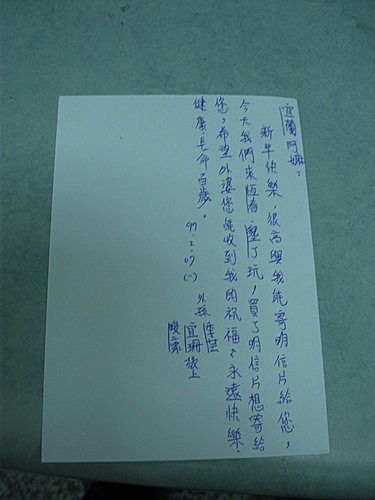 宜蘭阿嬤：
新年快樂，很高興我能寄明信片給您，
今天我們來恆春、墾丁玩，買了明信片想寄給
您，希望外婆您能收到我的祝福，永遠快樂、
健康、長命百歲。
99.2.07(一)
外孫 季芸
宜珊 敬上
峻豪